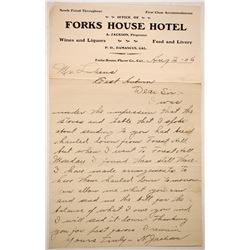 Newly Fitted Throughout
First Class Accommodations
OFFICE OF
FORKS HOUSE HOTEL
A. JACKSON, Proprietor
Wines and Liquors
Feed and Livery
P. O., DAMASCUS, CAL.
Forks House, Placer Co., Cal. Aug 2 1906
Mr
East Auburn
Dear Sir
I was
under the impression that the
stoves and table that I spoke
about sending to you had been
hauled down from Forest Hill
but when I went to Forest Hill
Monday I found them still there
I have made arrangements to
have them hauled down tomorrow
allow me what you can
and send me the bill for the
balance of what I owe you and
I will send it down. Thanking
you for past favors I remain
Yours Truly A Jackson